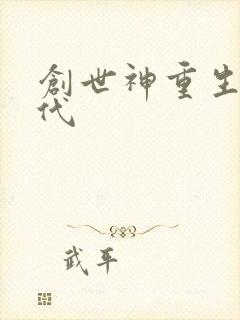 創世神重生
代
武平